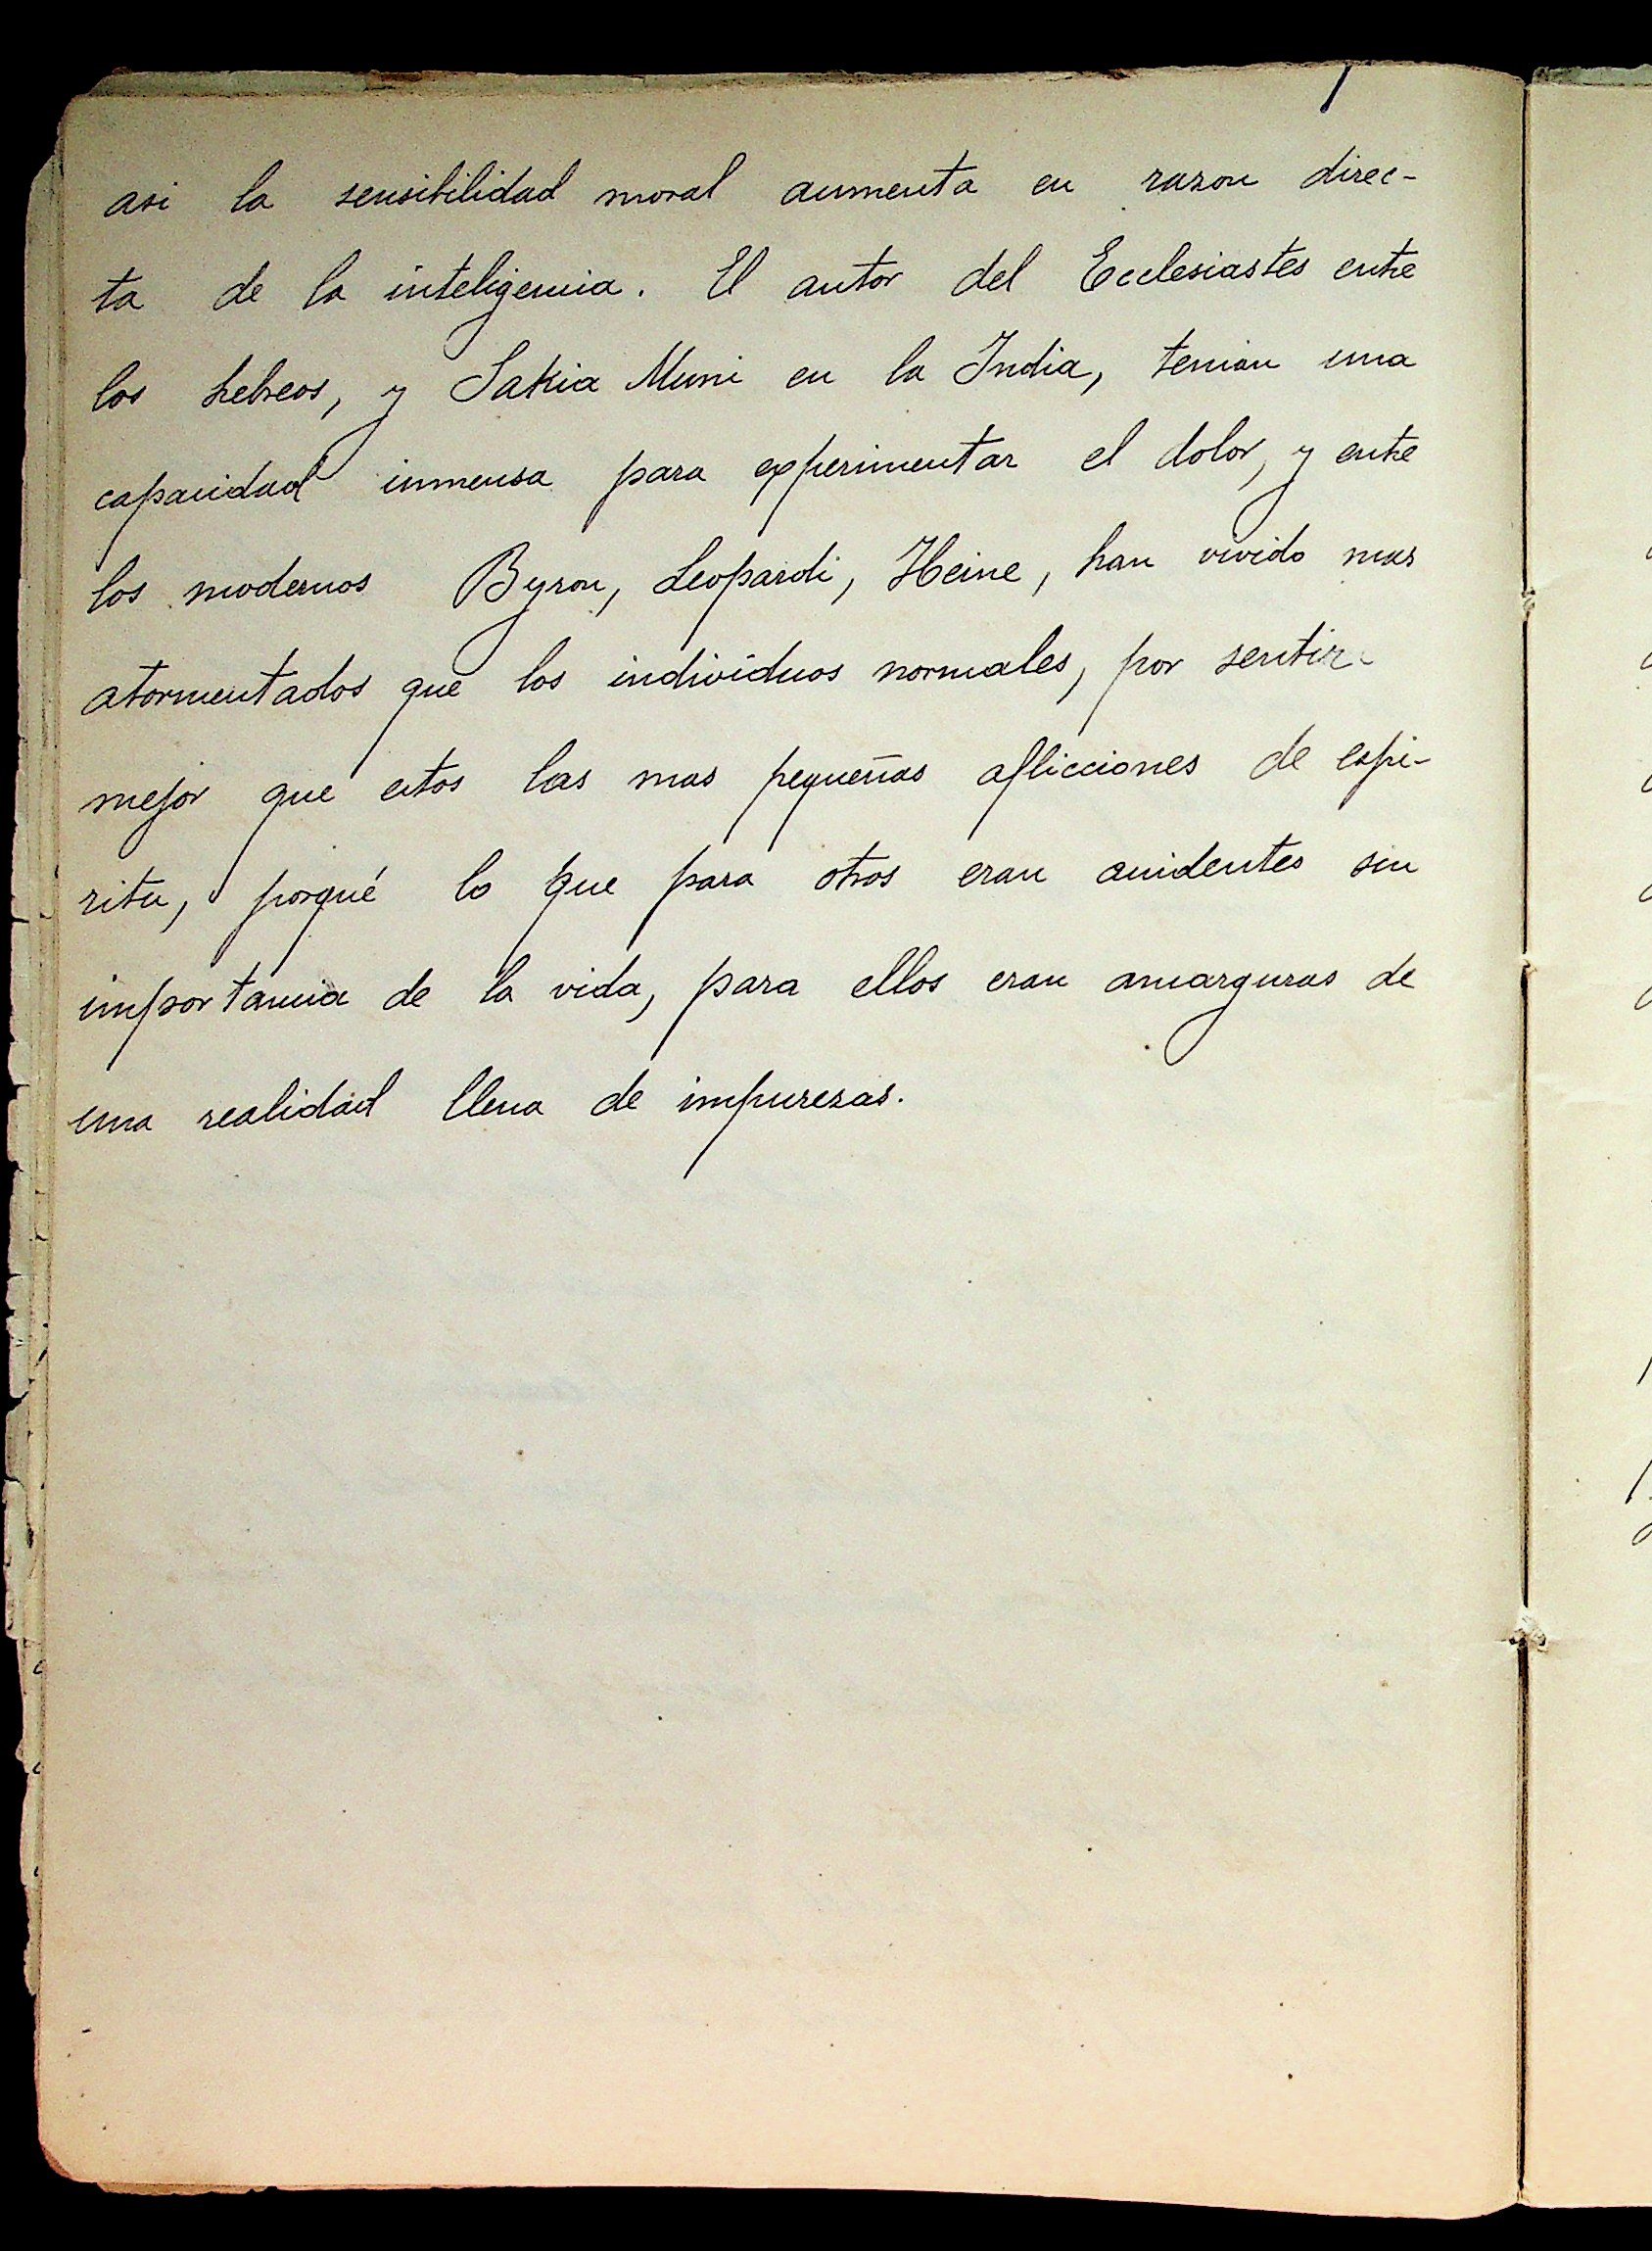 asi la sensibilidad moral aumenta en razon direc-
ta de la inteligencia. El autor del Ecclesiastes entre
los hebreos, y Sakia Muni en la India, tenian una
capacidad inmensa para experimentar el dolor, y entre
los modernos Byron, Leopardi, Heine, han vivido mas
atormentados que los individuos normales, por sentir
mejor que estos las mas pequeñas aflicciones de espi-
ritu, porqué lo que para otros eran accidentes sin
importancia de la vida, para ellos eran amarguras de
una realidad llena de impurezas.